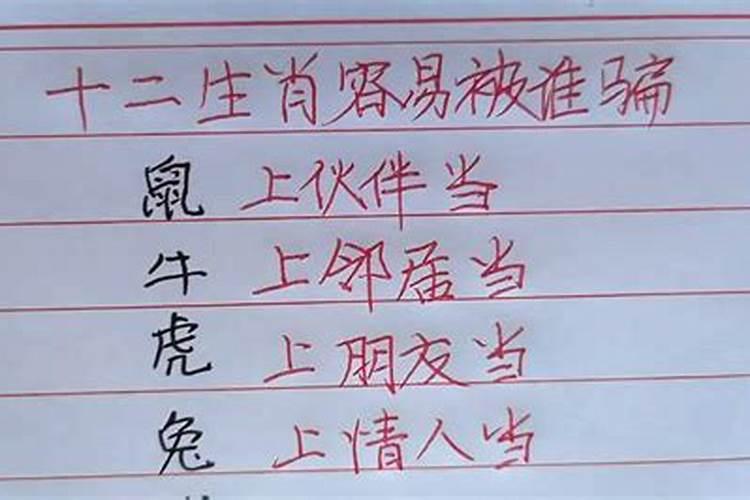 十二生肖容易被谁骗
鼠 上伙伴当
牛 上邻居当
虎 上朋友当
兔 上情人当